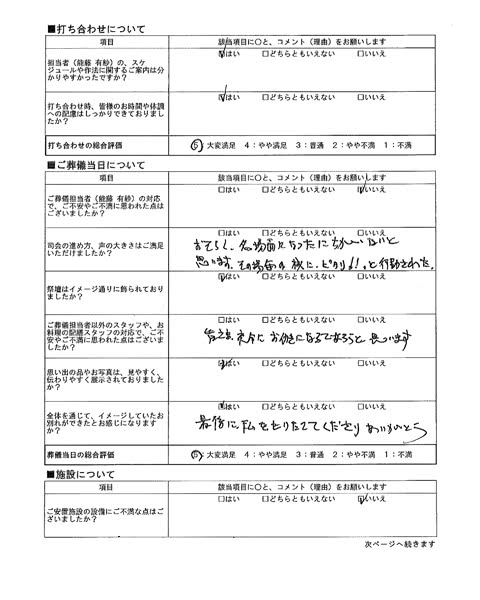 ■打ち合わせについて
項目 該当項目に○と、コメント（理由）をお願いします
担当者（能藤 有紗）の、スケジュールや作法に関するご案内は分かりやすかったですか？
☑はい □どちらともいえない □いいえ
打ち合わせ時、皆様のお時間や体調への配慮はしっかりできておりましたか？
☑はい □どちらともいえない □いいえ
打ち合わせの総合評価 ⑤：大変満足 4：やや満足 3：普通 2：やや不満 1：不満
■ご葬儀当日について
項目 該当項目に○と、コメント（理由）をお願いします
ご葬儀担当者（能藤 有紗）の対応で、ご不安やご不満に思われた点はございましたか？
□はい □どちらともいえない ☑いいえ
司会の進め方、声の大きさはご満足いただけましたか？
□はい □どちらともいえない □いいえ
おそらく、名場面に
思います。その場面の
祭壇はイメージ通りに飾られておりましたか？
☑はい □どちらともいえない □いいえ
ご葬儀担当者以外のスタッフや、お料理の配膳スタッフの対応で、ご不安やご不満に思われた点はございましたか？
□はい □どちらともいえない □いいえ
と思います
思い出の品やお写真は、見やすく、伝わりやすく展示されておりましたか？
☑はい □どちらともいえない □いいえ
全体を通じて、イメージしていたお別れができたとお感じになりますか？
☑はい □どちらともいえない □いいえ
最後に私をとりたててくださり ありがとう
葬儀当日の総合評価 ⑤：大変満足 4：やや満足 3：普通 2：やや不満 1：不満
■施設について
項目 該当項目に○と、コメント（理由）をお願いします
ご安置施設の設備にご不満な点はございましたか？
□はい □どちらともいえない ☑いいえ
次ページへ続きます